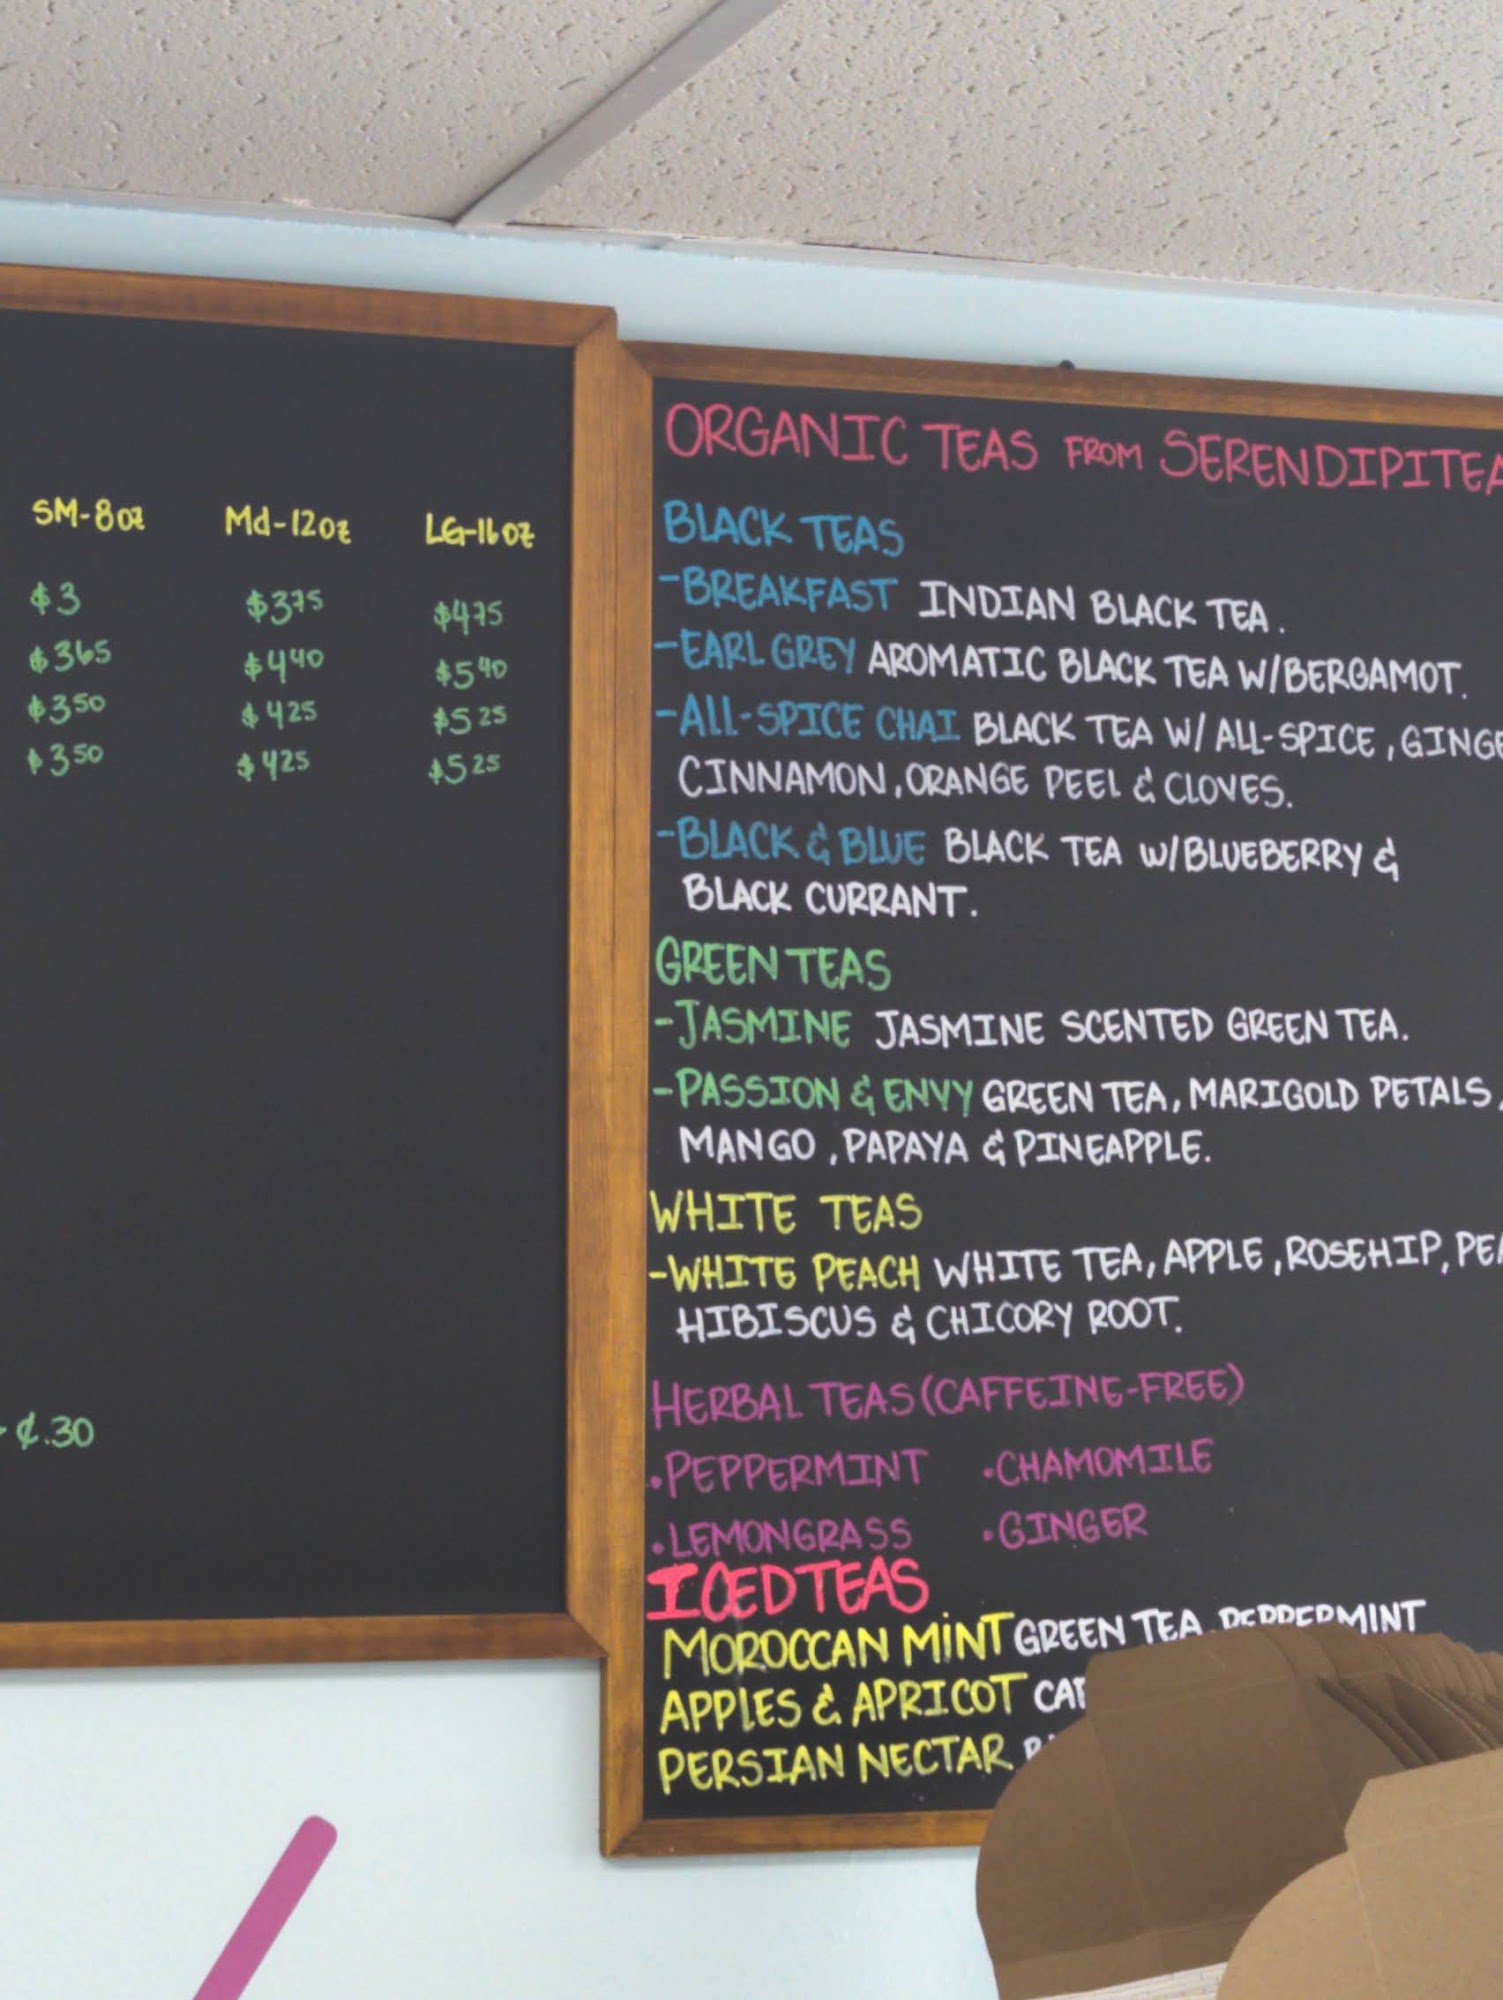 SM-8oz Md-12oz LG-16oz
$3 $375 $475
$365 $440 $540
$350 $425 $525
$350 $425 $525
¢.30
ORGANIC TEAS FROM SERENDIPITEA
BLACK TEAS
-BREAKFAST INDIAN BLACK TEA.
-EARL GREY AROMATIC BLACK TEA W/BERGAMOT.
-ALL-SPICE CHAI BLACK TEA W/ ALL-SPICE, GINGE
CINNAMON, ORANGE PEEL & CLOVES.
-BLACK & BLUE BLACK TEA W/BLUEBERRY &
BLACK CURRANT.
GREEN TEAS
-JASMINE JASMINE SCENTED GREEN TEA.
-PASSION & ENVY GREEN TEA, MARIGOLD PETALS,
MANGO, PAPAYA & PINEAPPLE.
WHITE TEAS
-WHITE PEACH WHITE TEA, APPLE, ROSEHIP, PEA
HIBISCUS & CHICORY ROOT.
HERBAL TEAS (CAFFEINE-FREE)
•PEPPERMINT •CHAMOMILE
•LEMONGRASS •GINGER
ICED TEAS
MOROCCAN MINT GREEN TEA, PEPPERMINT
APPLES & APRICOT
PERSIAN NECTAR